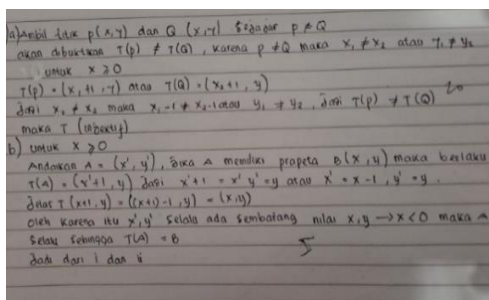 a) Ambil titik p(x,y) dan Q (x,y) sedadar p ≠ Q
akan dibuktikan T(p) ≠ T(Q), karena p ≠ Q maka x₁ ≠ x₂ atau y₁ ≠ y₂
untuk x ≥ 0
T(p) = (x₁+1, y) atau T(Q) = (x₂+1, y)
Jadi x₁ ≠ x₂ maka x₁-1 ≠ x₂-1 atau y₁ ≠ y₂, Jadi T(p) ≠ T(Q) 20
maka T (injektif)
b) untuk x ≥ 0
Andaikan A = (x', y'), Jika A memiliki prapeta B(x, y) maka berlaku
T(A) = (x'+1, y) Jadi x'+1 = x' y' = y atau x' = x-1, y' = y.
Jelas T(x+1, y) = ((x+1)-1, y) = (x,y)
oleh karena itu x', y' selalu ada sembarang nilai x,y → x < 0 maka A
selalu sehingga T(A) = B
5
Jadi dari i dan ii